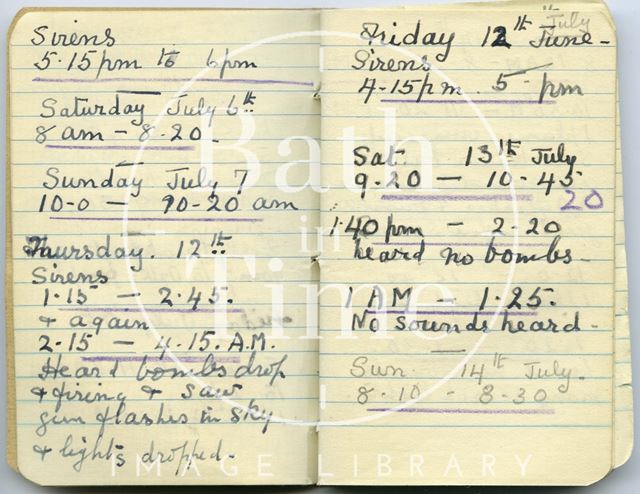 Sirens
5.15pm to 6pm
Saturday July 6th
8 am - 8.20.
Sunday July 7
10-0 - 10-20 am
Thursday. 12th
Sirens
1.15 - 2.45.
& again
2.15 - 4.15. A.M.
Heard bombs drop
& firing & saw
gun flashes in sky
& lights dropped.
Friday 12th June -
July
Sirens
4-15pm. 5 pm
Sat. 13th July
9.20 - 10-45
20
1.40 pm - 2-20
heard no bombs -
1 AM - 1.25.
No sounds heard -
Sun. 14th July.
8.10 - 8-30
Bath
in
Time
IMAGE LIBRARY